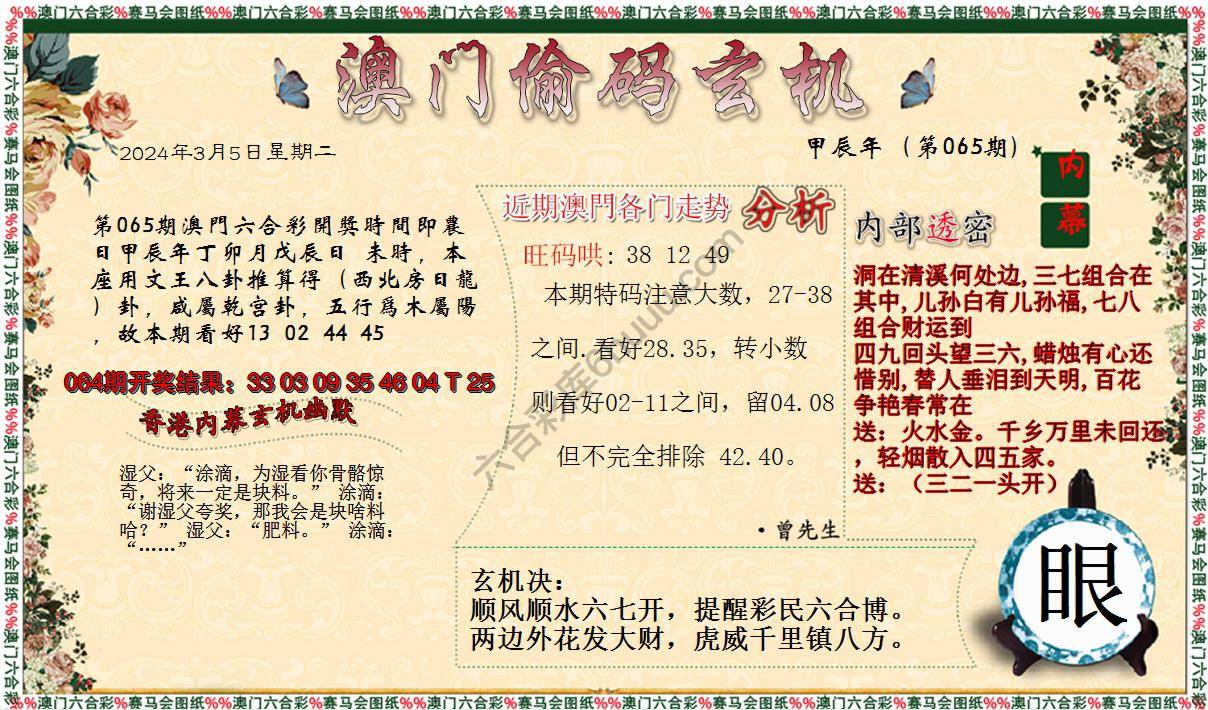 %%澳门六合彩%赛马会图纸%%澳门六合彩%赛马会图纸%%澳门六合彩%赛马会图纸%%澳门六合彩%赛马会图纸%%澳门六合彩%赛马会图纸%%澳门六合彩%赛马会图纸%%
澳门偷码玄机
2024年3月5日星期二
甲辰年（第065期）
内
幕
第065期澳門六合彩開獎時間即農
日甲辰年丁卯月戊辰日 未時，本
座用文王八卦推算得（西北房日龍
）卦，咸屬乾宫卦，五行爲木屬陽
，故本期看好13 02 44 45
064期开奖结果：33 03 09 35 46 04 T 25
香港内幕玄机幽默
湿父：“涂滴，为湿看你骨骼惊
奇，将来一定是块料。” 涂滴：
“谢湿父夸奖，那我会是块啥料
哈？” 湿父：“肥料。” 涂滴：
“……”
近期澳門各门走势 分析
旺码哄: 38 12 49
本期特码注意大数，27-38
之间.看好28.35，转小数
则看好02-11之间，留04.08
但不完全排除 42.40。
·曾先生
内部透密
洞在清溪何处边,三七组合在
其中,儿孙自有儿孙福,七八
组合财运到
四九回头望三六,蜡烛有心还
惜别,替人垂泪到天明,百花
争艳春常在
送：火水金。千乡万里未回还
，轻烟散入四五家。
送：（三二一头开）
玄机决：
顺风顺水六七开，提醒彩民六合博。
两边外花发大财，虎威千里镇八方。
眼
%%澳门六合彩%赛马会图纸%%澳门六合彩%赛马会图纸%%澳门六合彩%赛马会图纸%%澳门六合彩%赛马会图纸%%澳门六合彩%赛马会图纸%%澳门六合彩%赛马会图纸%%